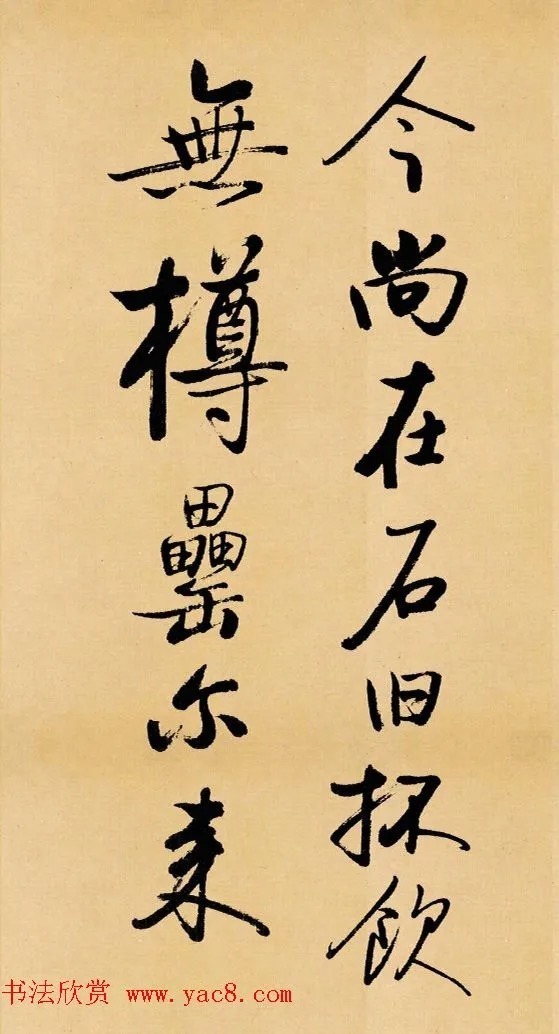 今尚在石臼抔飲
無樽罍尔来
书法欣赏 www.yac8.com